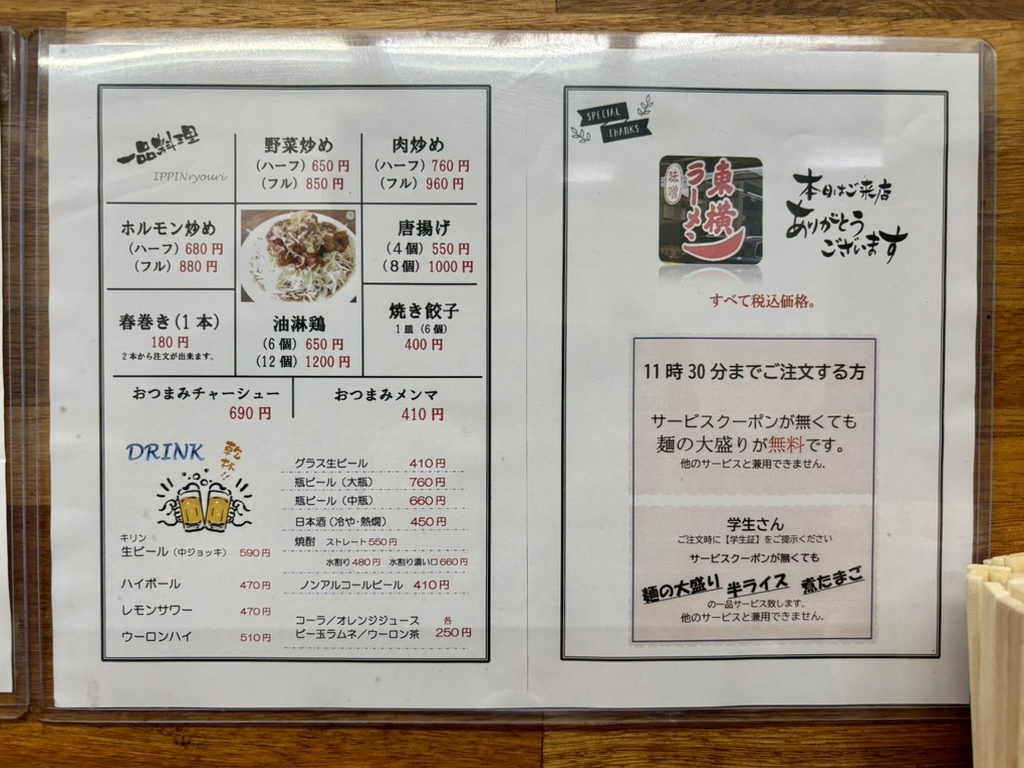 一品料理
IPPINryouri
野菜炒め
(ハーフ) 650 円
(フル) 850 円
肉炒め
(ハーフ) 760 円
(フル) 960 円
ホルモン炒め
(ハーフ) 680 円
(フル) 880 円
油淋鶏
(6 個) 650 円
(12 個) 1200 円
唐揚げ
(4 個) 550 円
(8 個) 1000 円
春巻き (1 本)
180 円
2 本から注文が出来ます。
焼き餃子
1 皿 (6 個)
400 円
おつまみチャーシュー
690 円
おつまみメンマ
410 円
DRINK
乾杯!!
キリン
生ビール (中ジョッキ) 590 円
ハイボール 470 円
レモンサワー 470 円
ウーロンハイ 510 円
グラス生ビール 410 円
瓶ビール (大瓶) 760 円
瓶ビール (中瓶) 660 円
日本酒 (冷や・熱燗) 450 円
焼酎 ストレート 550 円
水割り 480 円 水割り濃い口 660 円
ノンアルコールビール 410 円
コーラ/オレンジジュース 各
ビー玉ラムネ/ウーロン茶 250 円
SPECIAL
THANKS
東横
ラーメン
味噌
本日はご来店
ありがとう
ございます
すべて税込価格。
11 時 30 分までご注文する方
サービスクーポンが無くても
麺の大盛りが無料です。
他のサービスと兼用できません。
学生さん
ご注文時に【学生証】をご提示ください
サービスクーポンが無くても
麺の大盛り 半ライス 煮たまご
の一品サービス致します。
他のサービスと兼用できません。